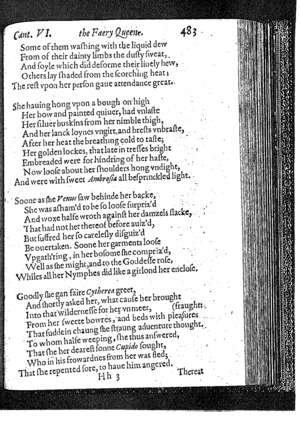 Cant. VI. the Faery Queene. 483
Some of them washing with the liquid dew
From of their dainty limbs the dusty sweat,
And soyle which did deforme their liuely hew,
Others lay shaded from the scorching heat;
The rest vpon her person gaue attendance great.
She hauing hong vpon a bough on high
Her bow and painted quiuer, had vnlaste
Her siluer buskins from her nimble thigh,
And her lanck loynes vngirt, and brests vnbraste,
After her heat the breathing cold to taste;
Her golden lockes, that late in tresses bright
Embreaded were for hindring of her haste,
Now loose about her shoulders hong vndight,
And were with sweet Ambrosia all besprinckled light.
Soone as she Venus saw behinde her backe,
She was asham'd to be so loose surpriz'd
And woxe halfe wroth against her damzels slacke,
That had not her thereof before auiz'd,
But suffred her so carelesly disguiz'd
Be ouertaken. Soone her garments loose
Vpgath'ring, in her bosome she compriz'd,
Well as she might, and to the Goddesse rose,
Whiles all her Nymphes did like a girlond her enclose.
Goodly she gan faire Cytherea greet,
And shortly asked her, what cause her brought
Into that wildernesse for her vnmeet, (fraught:
From her sweete bowres, and beds with pleasures
That suddein chaung she straung aduenture thought.
To whom halfe weeping, she thus answered,
That she her dearest sonne Cupido sought,
Who in his frowardnes from her was fled;
That she repented sore, to haue him angered.
H h 3 Thereat